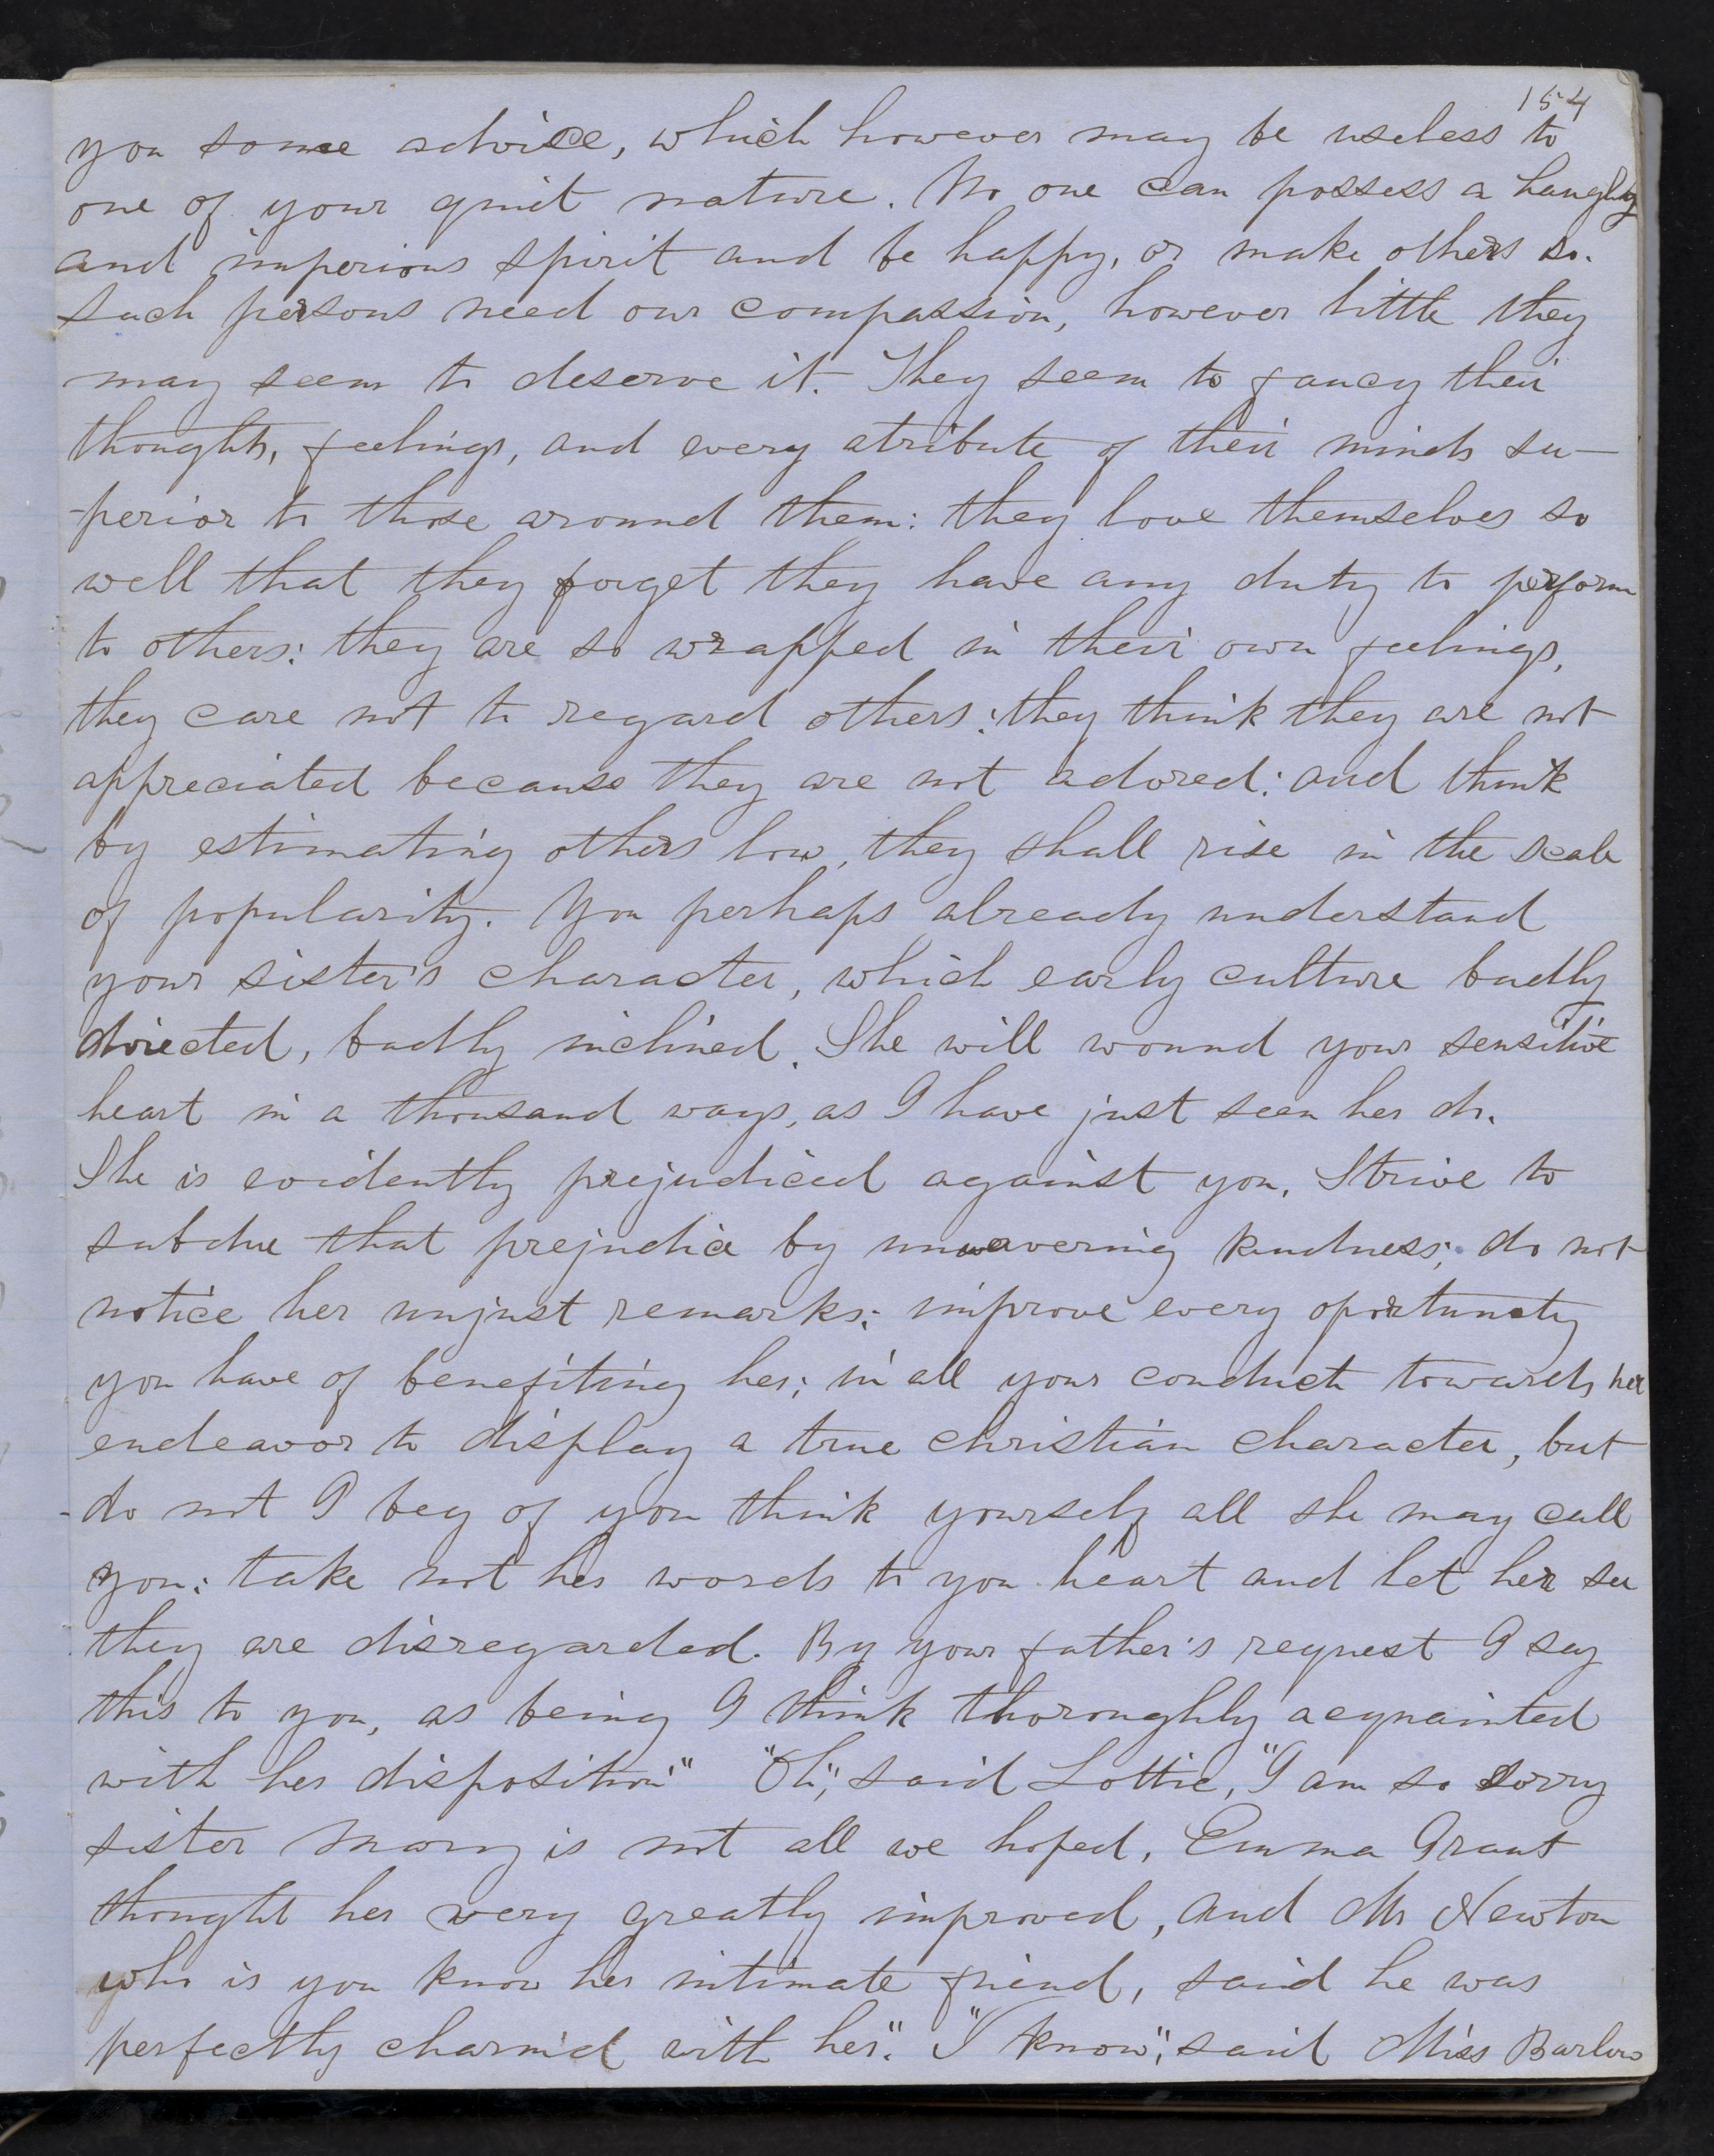 154
you some advice, which however may be useless to
one of your quiet nature. No one can possess a haughty
and imperious spirit and be happy, or make others so.
Such persons need our compassion, however little they
may seem to deserve it. They seem to fancy their
thoughts, feelings, and every atribute of their minds su-
-perior to those around them: they love themselves so
well that they forget they have any duty to perform
to others: they are so wrapped in their own feelings,
they care not to regard others: they think they are not
appreciated because they are not adored: and think
by estimating others low, they shall rise in the scale
of popularity. You perhaps already understand
your sister's character, which early culture badly
directed, badly inclined. She will wound your sensitive
heart in a thousand ways, as I have just seen her do.
She is evidently prejudiced against you. Strive to
subdue that prejudice by unwavering kindness; do not
notice her unjust remarks; improve every oportunety
you have of benefiting her; in all your conduct towards her
endeavor to display a true christian character, but
do not I beg of you think yourself all she may call
you: take not her words to you heart and let her see
they are disregarded. By your father's request I say
this to you, as being I think thoroughly acquainted
with her disposition" "Oh," said Lottie, "I am so sorry
sister Mary is not all we hoped, Emma Grant
thought her very greatly improved, and Mr Newton
who is you know her intimate friend, said he was
perfectly charm'd with her". "I know", said Miss Barlow